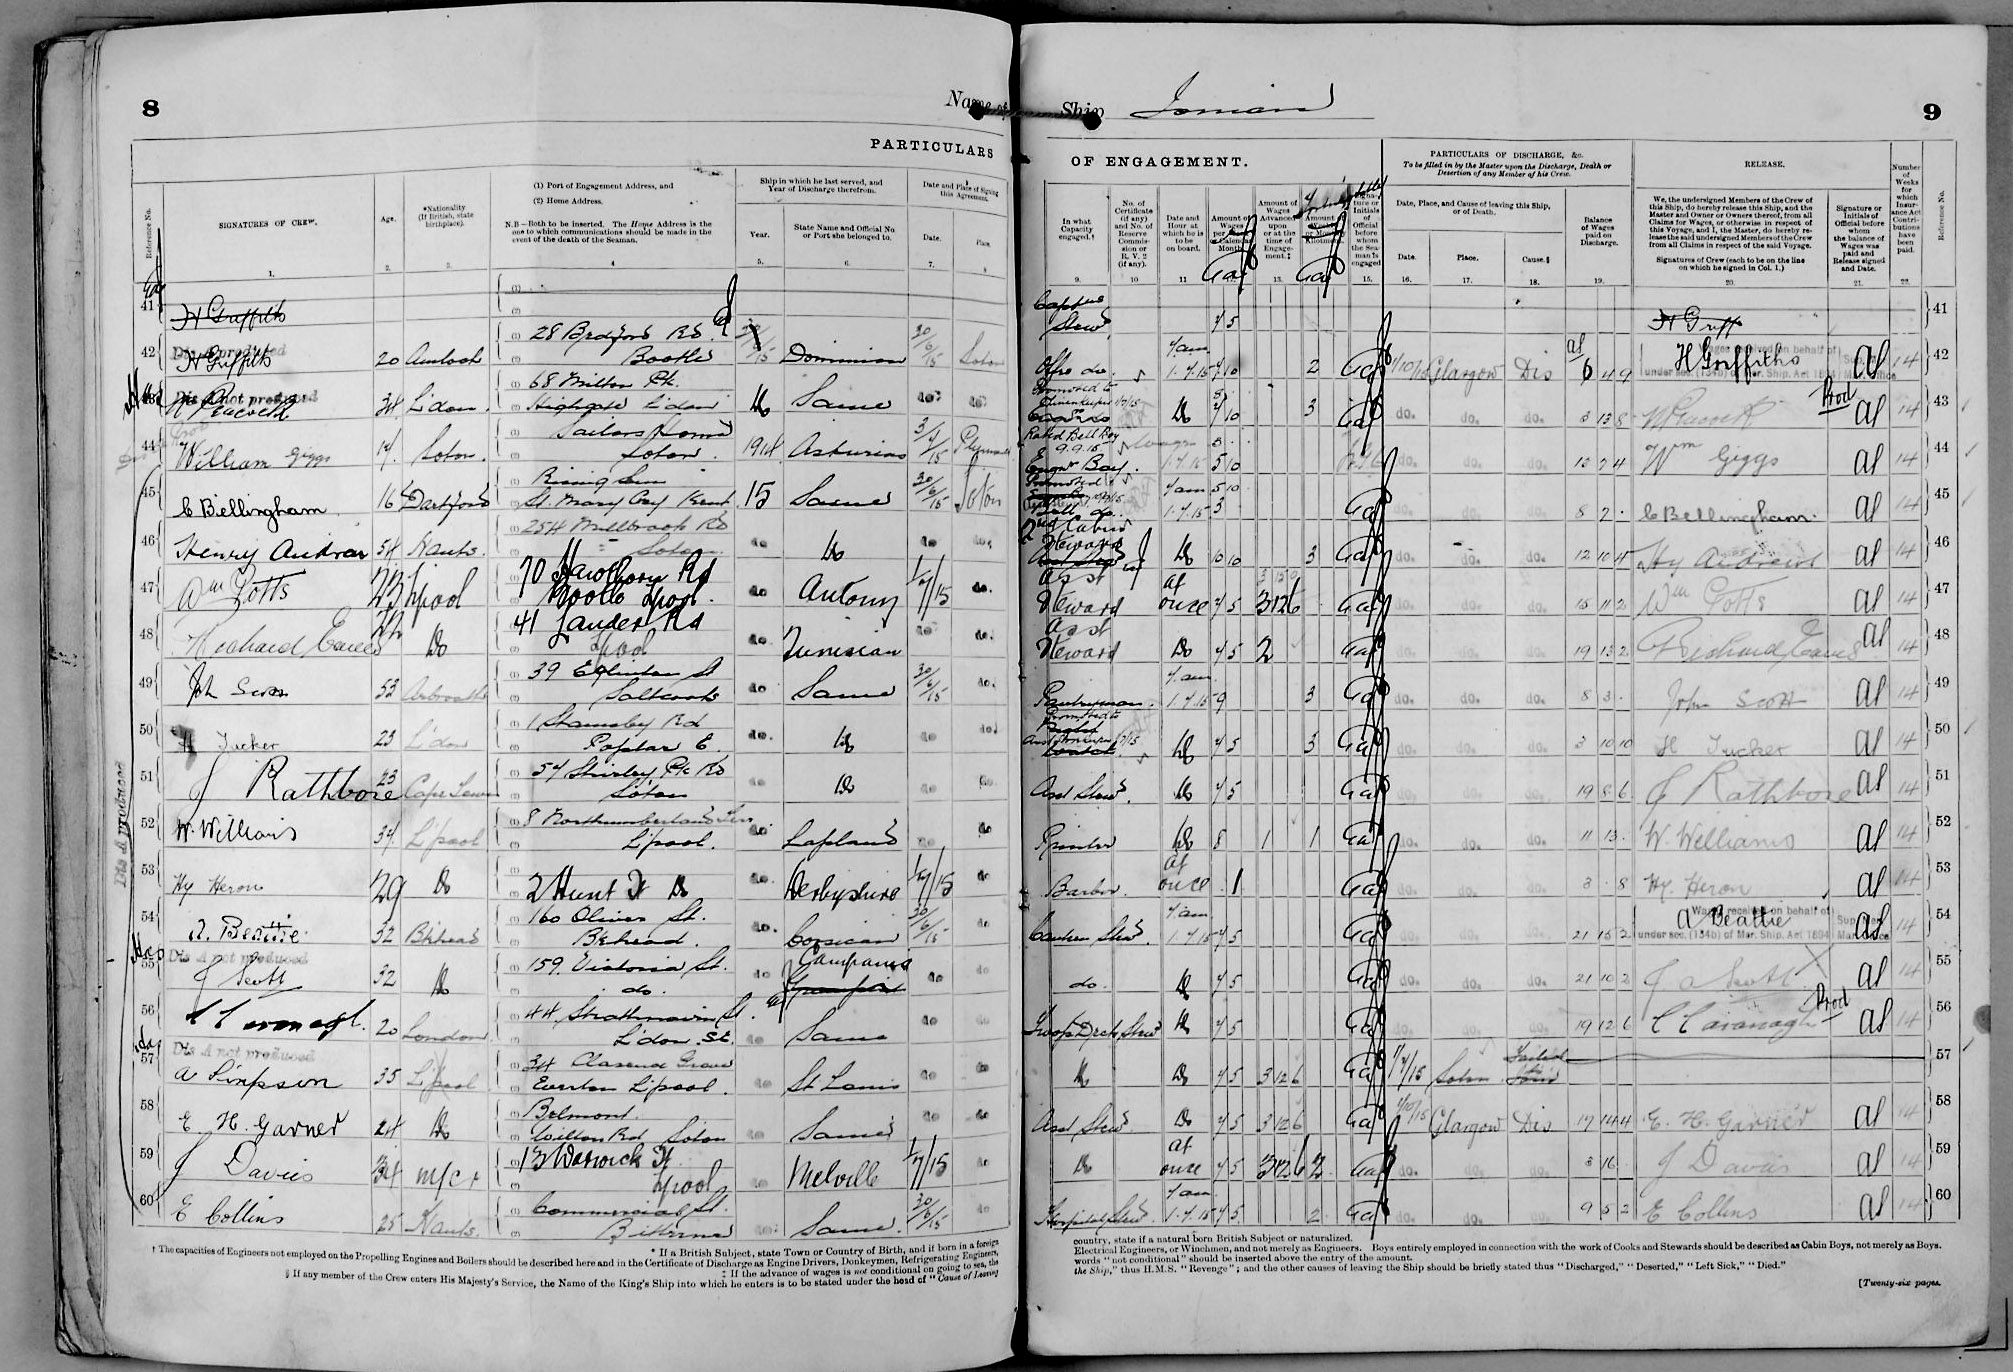 8
Name of
PARTICULARS
Reference No.
SIGNATURES OF CREW.
Age.
*Nationality
(If British, state
birthplace).
(1) Port of Engagement Address, and
(2) Home Address.
N.B—Both to be inserted. The Home Address is the
one to which communications should be made in the
event of the death of the Seaman.
Ship in which he last served, and
Year of Discharge therefrom.
Year.
State Name and Official No
or Port she belonged to.
Date and Place of Signing
this Agreement.
Date.
Place.
1. 2. 3. 4 5. 6. 7. 8
41 H Griffiths
42 Dis A produced
H Griffiths 20 Amloch 28 Bedford Rd Bootle 15 Dominion 30/6/15 Soton
43 Dis A not produced
Peacock 34 L'don. 68 Milton Pk. Highgate L'don Do Same do do
44 William Giggs 17. Soton. Sailors Home Soton. 1914 Asturias 3/7/15 Plymouth
45 C Bellingham 16 Dartford Rising Sun St. Mary Cray Kent. 15 Same 30/6/15 Soton
46 Henry Andrews 54 Hants. 254 Millbrook Rd Soton. do Do do do.
47 Wm Potts 23 L'pool 70 Hawthorn Rd Bootle Lpool. do Antony 1/7/15 do.
48 Richard Eaves 22 Do 41 Lander Rd Lpool do. Tunisian do do.
49 John Scott 53 Arbroath 39 Eglinton St Saltcoats do Same 30/6/15 do.
50 H Tucker 23 L'don 1 Stainsby Rd Poplar E. do. Do do do.
51 J Rathbore 23 Cape Town 54 Shirley Pk Rd Soton do Do do do.
52 W. Williams 37. L'pool 8 Northumberland Terr L'pool. do. Lapland do do
53 Hy Heron 29 Do 2 Hunt St Do do. Derbyshire 1/7/15 do
54 A. Beattie 32 B'khead 160 Oliver St. B'khead. do. Corsican 30/6/15 do
55 Dis A not produced
J Scott 32 Do 159. Victoria St. do. do Campania do do
56 C Cavanagh. 20 London 44 Strathnairn St. L'don. S.E. do Same do do
57 Dis A not produced
A Simpson 35 L'pool 34 Clarend Grove Everton L'pool. do St Louis do do
58 E. H. Garner 24 Do Belmont. Wilton Rd Soton do Same do do
59 J Davies 34 M/cr 13 Warwick St Lpool do Melville 1/7/15 do
60 E Collins 25 Hants. Commercial St. Bitterne do. Same. 30/6/15 do
Dis A produced
* If a British Subject, state Town or Country of Birth, and if born in a foreign
† The capacities of Engineers not employed on the Propelling Engines and Boilers should be described here and in the Certificate of Discharge as Engine Drivers, Donkeymen, Refrigerating Engineers,
‡ If the advance of wages is not conditional on going to sea, the
§ If any member of the Crew enters His Majesty's Service, the Name of the King's Ship into which he enters is to be stated under the head of "Cause of Leaving
Ship Ionian
9
OF ENGAGEMENT.
PARTICULARS OF DISCHARGE, &c.
To be filled in by the Master upon the Discharge, Death or
Desertion of any Member of his Crew.
RELEASE.
In what
Capacity
engaged.†
No. of
Certificate
(if any)
and No. of
Reserve
Commis-
sion or
R. V. 2
(if any).
Date and
Hour at
which he is
to be
on board.
Amount of
Wages
per
Calendar
Month
Amount of
Wages
Advanced
upon
or at the
time of
Engage-
ment.‡
Amount of
Allotment.
Signa-
ture or
Initials
of
Official
before
whom
the Sea-
man is
engaged
Date, Place, and Cause of leaving this Ship,
or of Death.
Date. Place. Cause.§
Balance
of Wages
paid on
Discharge.
We, the undersigned Members of the Crew of
this Ship, do hereby release this Ship, and the
Master and Owner or Owners thereof, from all
Claims for Wages, or otherwise in respect of
this Voyage, and I, the Master, do hereby re-
lease the said undersigned Members of the Crew
from all Claims in respect of the said Voyage.
Signatures of Crew (each to be on the line
on which he signed in Col. 1.)
Signature or
Initials of
Official before
whom
the balance of
Wages was
paid and
Release signed
and Date.
Number
of
Weeks
for
which
Insur-
ance Act
Contri-
butions
have
been
paid.
Reference No.
9. 10 11 13. 15. 16. 17. 18. 19. 20. 21. 22.
Stew 4 5 H Griff 41
Offrs do. 4am 1.7.15 2 Glasgow Dis 6 4 9 H Griffiths 14 42
Do 3 do. do. do. 3 13 8 Peacock Prod 14 43
Rated Bell Boy 9.9.15 Boy. 5 10 do. do. do. 13 7 4 Wm Giggs 14 44
Bell do. 4am 1.7.15 3 do. do. do. 8 2 C Bellingham. 14 45
Steward Do 10 10 3 do. do. do. 12 10 4 Hy Andrews 14 46
Asst Steward at once 4 5 3 12 6 do. do. do. 15 11 2 Wm Potts 14 47
Asst Steward Do 4 5 2 do. do. do. 19 13 2 Richard Eaves 14 48
Pantryman. 4am. 1.7.15 9 3 do. do. do. 8 3 John Scott 14 49
Do 4 5 3 do. do. do. 3 10 10 H Tucker 14 50
Asst Stew. Do 4 5 do. do. do. 19 8 6 J Rathbore 14 51
Printer Do 8 1 1 do. do. do. 11 13 W. Williams 14 52
Barber. at once 1 do. do. do. 3 8 Hy. Heron 14 53
Canteen Stew. 4am 1.7.15 4 5 do. do. do. 21 15 2 A Beattie 14 54
Wages received on behalf of
under sec. (134b) of Mar. Ship. Act 1894
do. Do 4 5 do. do. do. 21 10 2 J A Scott 14 55
Troop Deck Stew Do 4 5 do. do. do. 19 12 6 C Cavanagh Prod 14 56
Do Do 4 5 3 12 6 1/7/15 Soton Failed to Join 57
Asst Stew Do 4 5 3 12 6 1/10/15 Glasgow Dis 17 14 4 E. H. Garner 14 58
Do at once 4 5 3 12 6 2 do. do. do. 3 16 J Davies 14 59
Hospital Stew. 4am. 1.7.15 4 5 2 do. do. do. 9 5 2 E Collins 14 60
country, state if a natural born British Subject or naturalized.
Electrical Engineers, or Winchmen, and not merely as Engineers. Boys entirely employed in connection with the work of Cooks and Stewards should be described as Cabin Boys, not merely as Boys.
words "not conditional" should be inserted above the entry of the amount.
the Ship," thus H.M.S. "Revenge"; and the other causes of leaving the Ship should be briefly stated thus "Discharged," "Deserted," "Left Sick," "Died."
[Twenty-six pages.